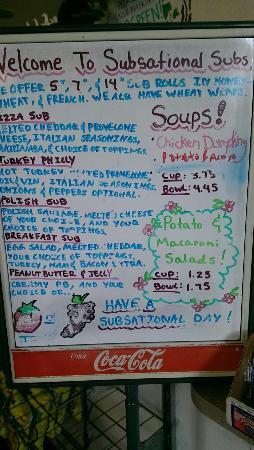 Welcome To Subsational Subs,
E OFFER 5", 7", & 14" SUB ROLLS IN HONEY
HEAT, & FRENCH. WE ALSO HAVE WHEAT WRAPS.
IZZA SUB
ELTED CHEDDAR & PROVELONE
CHEESE, ITALIAN SEASONINGS,
MARINARA, & CHOICE OF TOPPINGS.
TURKEY PHILLY
HOT TURKEY PROVELONE,
OIL/VIN, ITALIAN SEASONINGS,
ONIONS & PEPPERS OPTIONAL.
POLISH SUB
POLISH SAUSAGE, MELTED CHEESE
OF YOUR CHOICE, AND YOUR
CHOICE OF TOPPINGS.
BREAKFAST SUB
EGG SALAD, MELTED CHEDDAR,
YOUR CHOICE OF TOPPINGS.
TURKEY, HAM & BACON EXTRA.
PEANUT BUTTER & JELLY
CREAMY PB, AND YOUR
CHOICE OF...
SOUPS!
Chicken Dumpling
Potato & Bacon
CUP: 3.75
BOWL: 4.45
Potato &
Macaroni
Salads!
CUP: 1.25
BOWL: 1.75
HAVE A
SUBSATIONAL DAY!
Enjoy
Coca-Cola